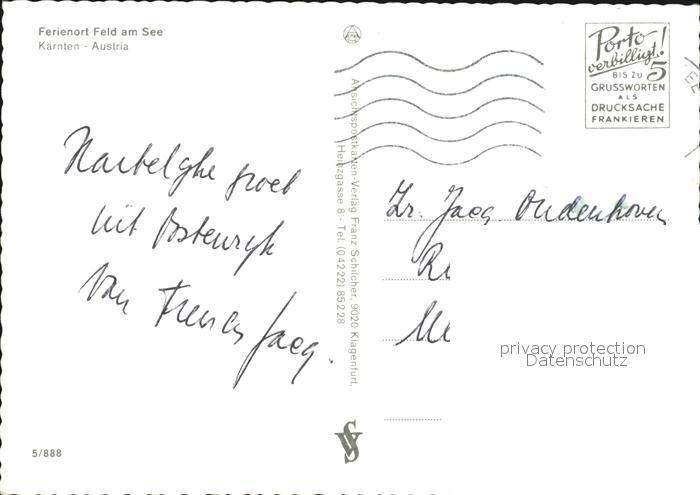 Ferienort Feld am See
Kärnten - Austria
Hartelyke groet
uit Oostenryk
Van
Jacq.
5/888
Ansichtspostkarten-Verlag Franz Schilcher, 9020 Klagenfurt,
Heinzgasse 8 - Tel. (0 42 22) 85 2 28
Porto
verbilligt!
BIS ZU 5
GRUSSWORTEN
ALS
DRUCKSACHE
FRANKIEREN
Jacq. Oudenhoven
privacy protection
Datenschutz